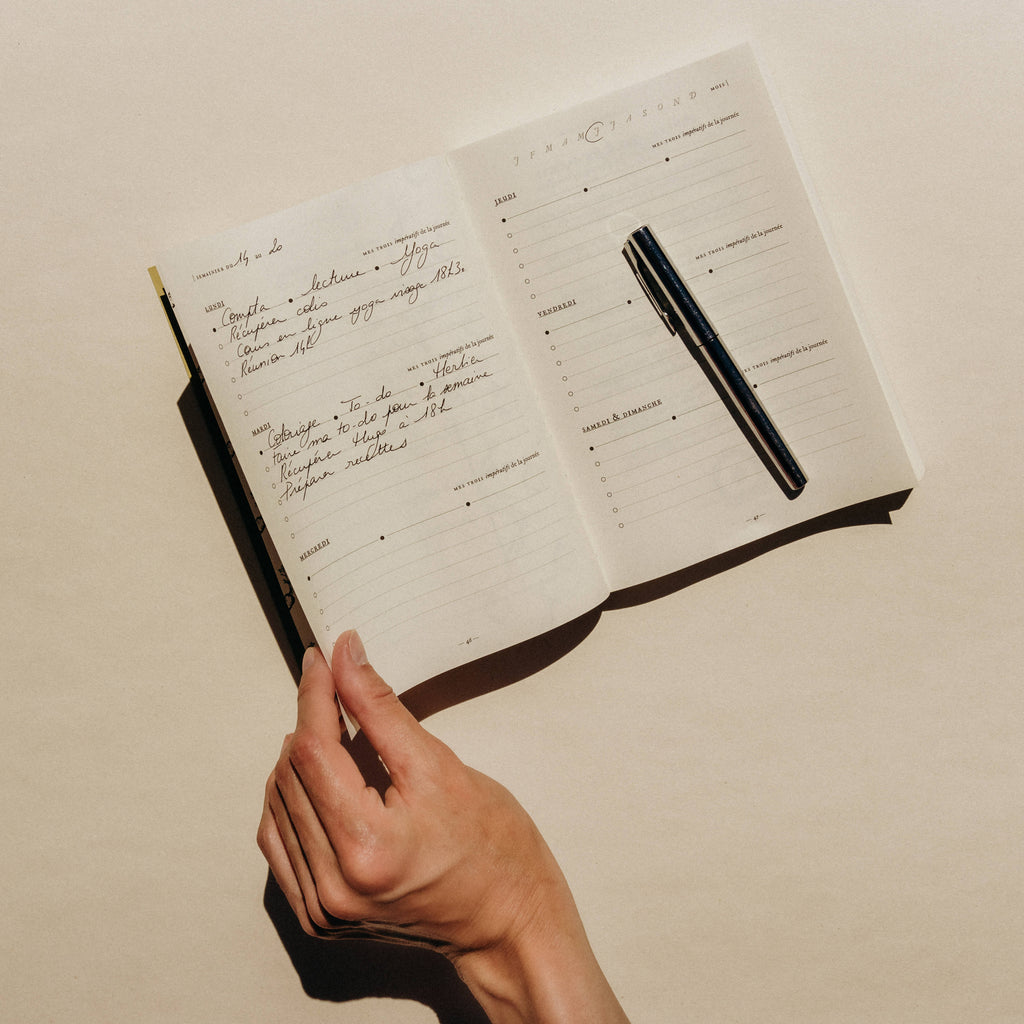 [SEMAINIER DU 14 AU 20
MES TROIS impératifs de la journée
LUNDI
Compta • lecture • Yoga
Récupérer colis
Cours en ligne yoga visage 18h30
Réunion 14h
MES TROIS impératifs de la journée
MARDI
Coloriage • To-do • Herbier
Faire ma to-do pour la semaine
Récupérer Hugo à 18h
Préparer recettes
MES TROIS impératifs de la journée
MERCREDI
— 46 —
J F M A M J J A S O N D MOIS]
MES TROIS impératifs de la journée
JEUDI
MES TROIS impératifs de la journée
VENDREDI
MES TROIS impératifs de la journée
SAMEDI & DIMANCHE
— 47 —